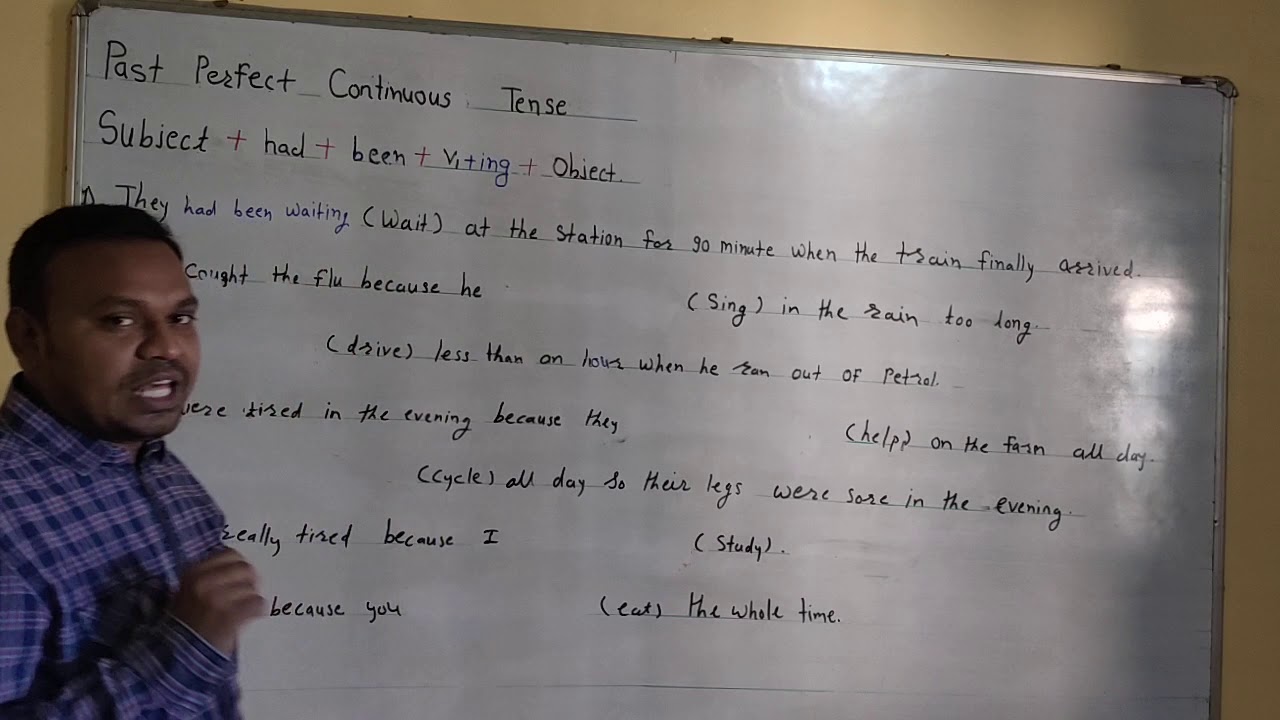 Past Perfect Continuous Tense
Subject + had + been + V1+ing + Object.
They had been waiting (Wait) at the station for 90 minute when the train finally arrived.
Caught the flu because he (Sing) in the rain too long.
(drive) less than an hour when he ran out of Petrol.
were tired in the evening because they (help) on the farm all day.
(Cycle) all day so their legs were sore in the evening.
really tired because I (Study).
because you (eat) the whole time.